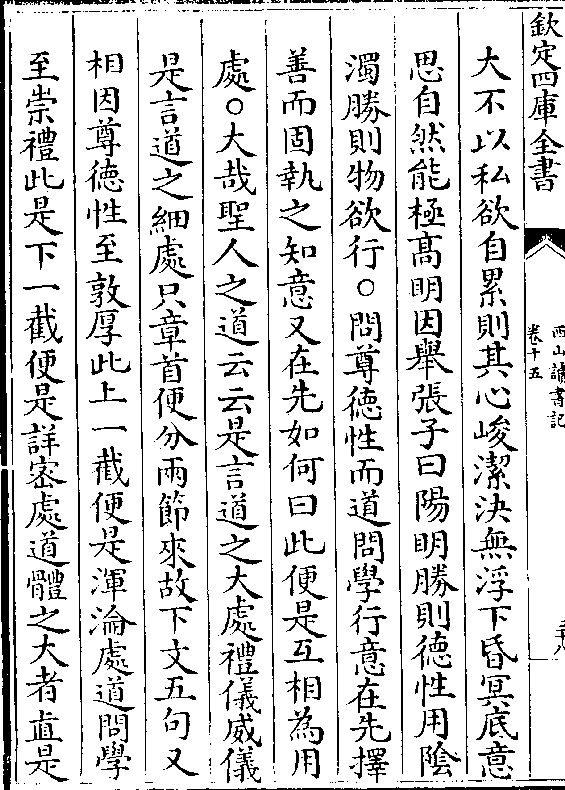 欽定四庫全書
西山讀書記
卷十五
大不以私欲自累則其心峻潔決無浮下昏冥底意
思自然能極髙明因舉張子曰陽明勝則徳性用陰
濁勝則物欲行○問尊徳性而道問學行意在先擇
善而固執之知意又在先如何曰此便是互相為用
處○大哉聖人之道云云是言道之大處禮儀威儀
是言道之細處只章首便分兩節來故下文五句又
相因尊徳性至敦厚此上一截便是渾淪處道問學
至崇禮此是下一截便是詳宻處道體之大者直是